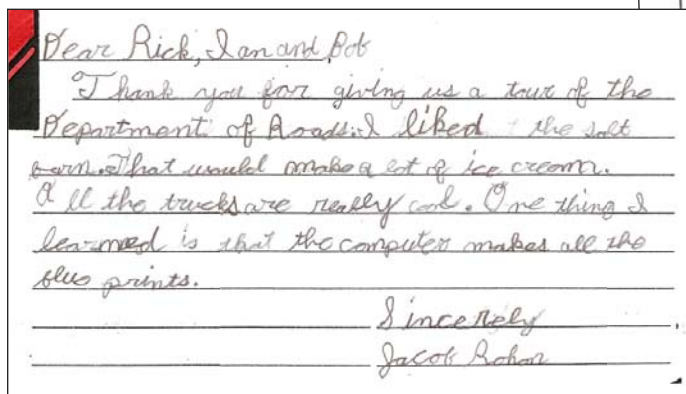 Dear Rick, Ian and Bob
Thank you for giving us a tour of the
Department of Roads. I liked the salt
barn. That would make a lot of ice cream.
All the trucks are really cool. One thing I
learned is that the computer makes all the
blue prints.
Sincerely
Jacob Rohan